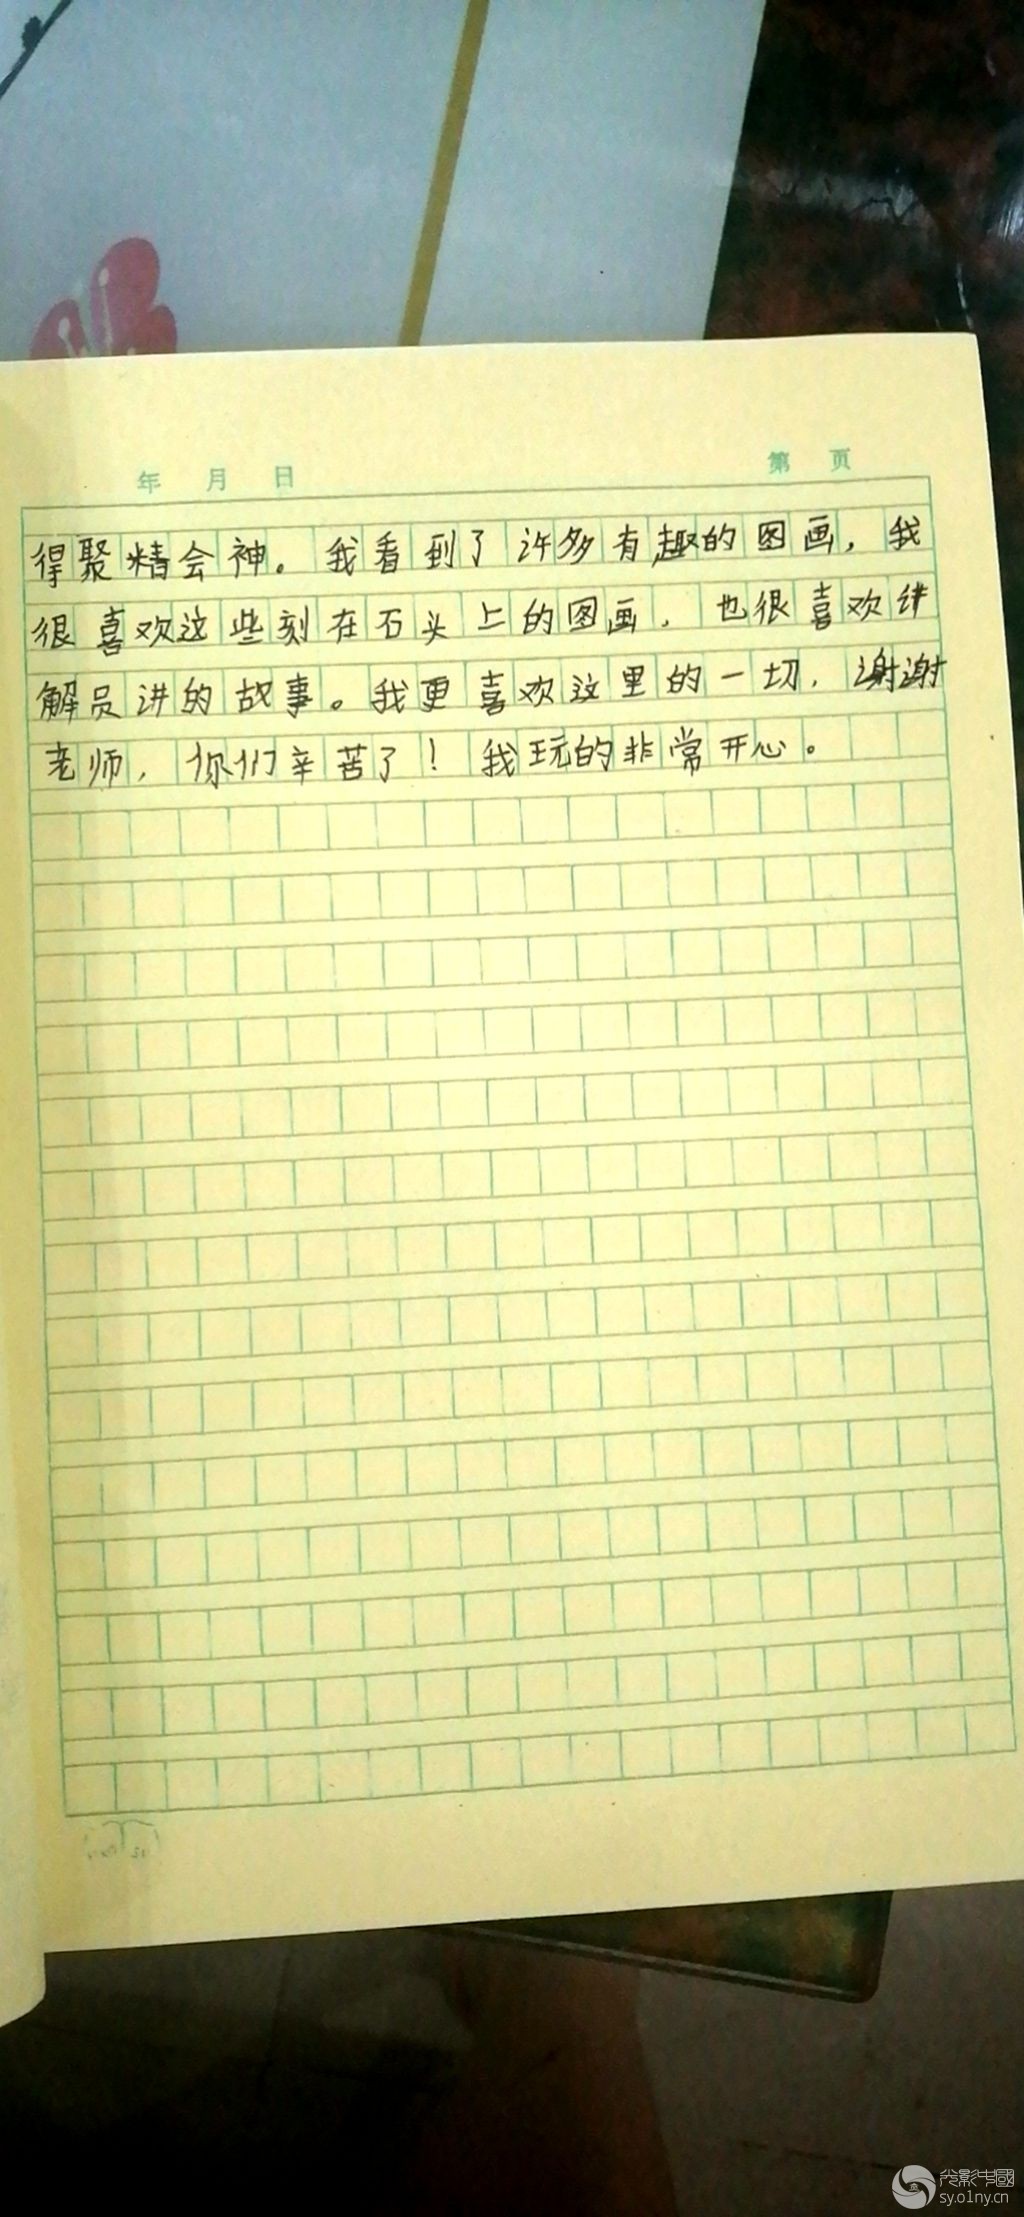 年 月 日 第 页
得聚精会神。我看到了许多有趣的图画,我
很喜欢这些刻在石头上的图画,也很喜欢讲
解员讲的故事。我更喜欢这里的一切,谢谢
老师,你们辛苦了!我玩的非常开心。
光影中國
sy.o1ny.cn